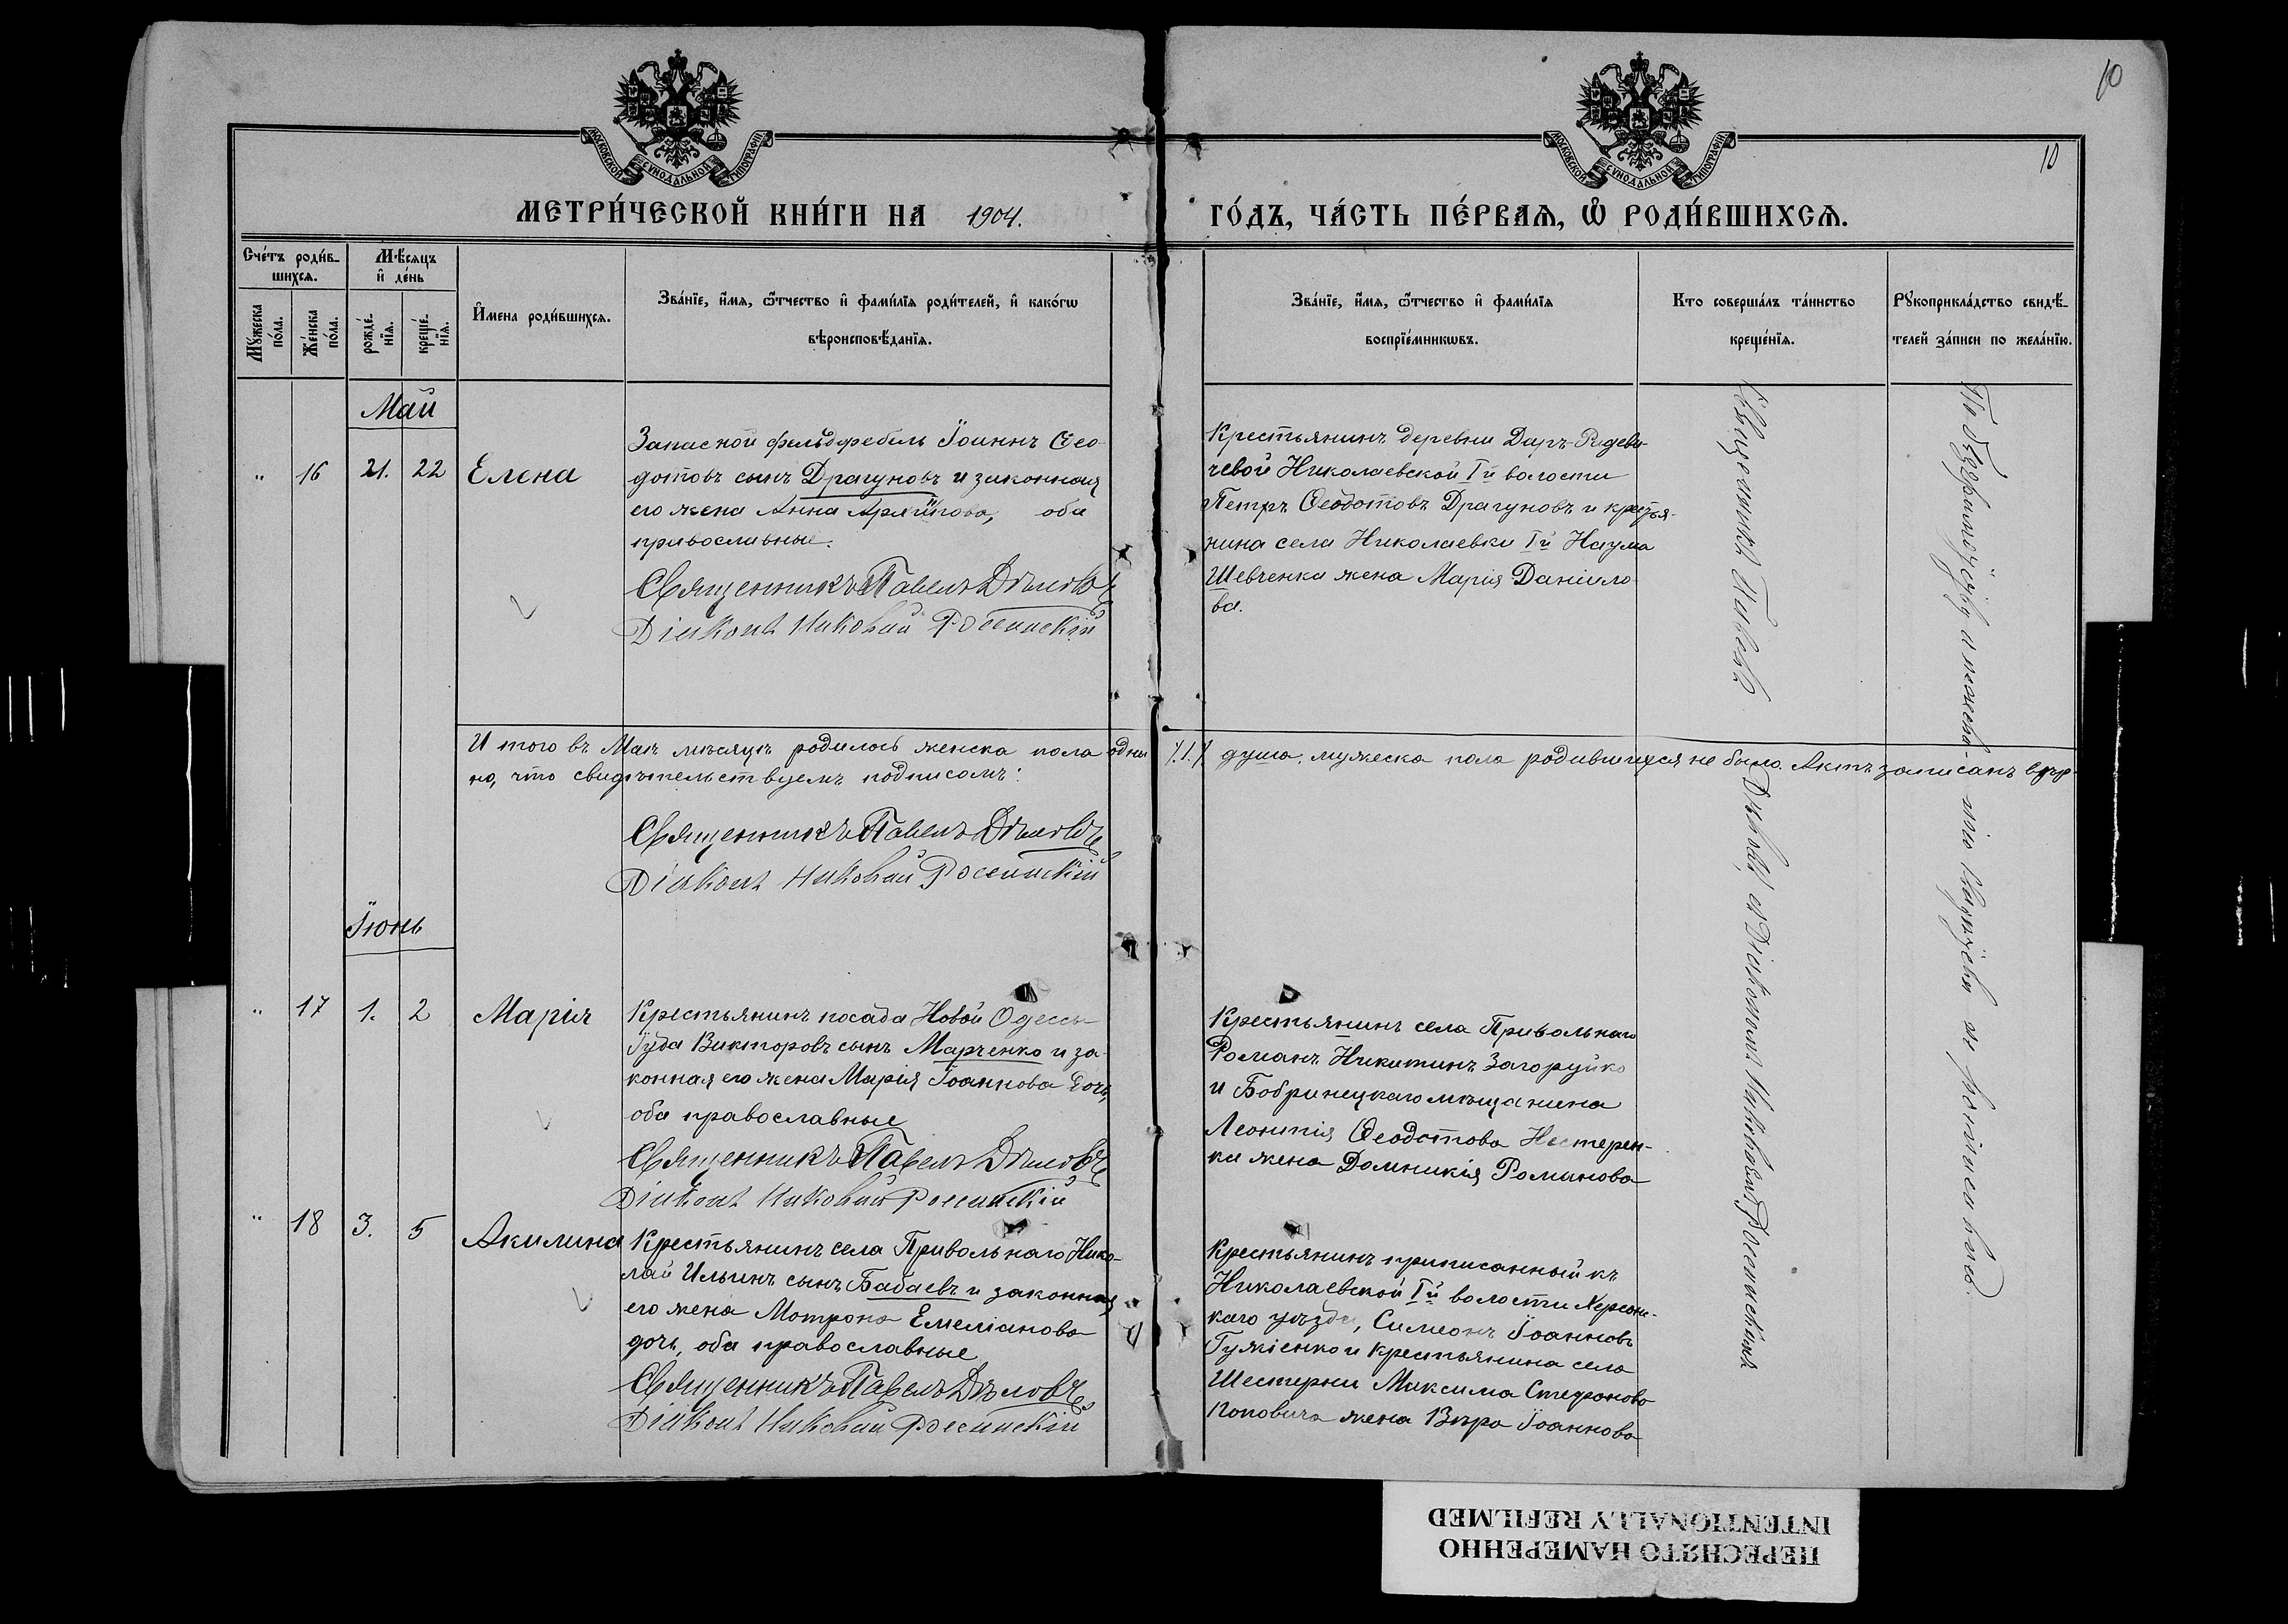 10
10
МОСКОВСКОЙ СУНОДАЛЬНОЙ ТИПОГРАФІИ
МОСКОВСКОЙ СУНОДАЛЬНОЙ ТИПОГРАФІИ
МЕТРИ́ЧЕСКОЙ КНИ́ГИ НА 1904.
ГО́ДЪ, ЧА́СТЬ ПЕ́РВАѦ, Ѡ҆ РОДИ́ВШИХСѦ.
Сче́тъ роди́в-
шихсѧ.
Мꙋ́жеска по́ла.
Же́нска по́ла.
Мѣ́сѧцъ
и҆ де́нь
рожде́-нїѧ.
креще́-нїѧ.
И҆мена роди́вшихсѧ.
Зва́нїе, и҆́мѧ, ѻ҆́тчество и҆ фами́лїѧ роди́телей, и҆ како́гѡ
вѣроисповѣ́данїѧ.
Зва́нїе, и҆́мѧ, ѻ҆́тчество и҆ фами́лїѧ
воспрїе́мникѡвъ.
Кто соверша́лъ та́инство
креще́нїѧ.
Рꙋкоприкла́дство свидѣ́-
телей за́писи по жела́нїю.
Май
" 16 21. 22 Елена
Запасной фельдфебель Іоаннъ Ѳео-
дотовъ сынъ Драгуновъ и законная
его жена Анна, оба
православные.
Священникъ Павелъ Дѣловъ
Діаконъ Николай Россинскій
Крестьянинъ деревни
чевой Николаевской Iй волости
Петръ Ѳеодотовъ Драгуновъ и крестья-
нина села Николаевки Iй Наума
Шевченка жена Марія Даніило-
ва.
Священникъ Павелъ
Дѣловъ съ Діакономъ Николаемъ Россинскимъ
Итого въ Маѣ мѣсяцѣ родилось женска пола одна /1/ душа, мужеска пола родившихся не было. Актъ записанъ вѣр-
но, что свидѣтельствуемъ подписомъ:
Священникъ Павелъ Дѣловъ
Діаконъ Николай Россинскій
Іюнь
" 17 1. 2 Марія
Крестьянинъ посада Новой Одессы
Іуда Викторовъ сынъ Марченко и за-
конная его жена Марія Іоаннова дочь,
оба православные
Священникъ Павелъ Дѣловъ
Діаконъ Николай Россинскій
Крестьянинъ села Привольнаго
Романъ Никитинъ Загоруйко
и Бобринецкаго мѣщанина
Леонтія Ѳеодотова Нестерен-
ки жена Домникія Романова
" 18 3. 5 Акилина
Крестьянинъ села Привольнаго Нико-
лай Ильинъ сынъ Бабаевъ и законная
его жена Мотрона Емеліанова
дочь, оба православные
Священникъ Павелъ Дѣловъ
Діаконъ Николай Россинскій
Крестьянинъ приписанный къ
Николаевской Iй волости Херсон-
каго уѣзда, Симеонъ Іоанновъ
Гужіенко и крестьянина села
Шестерни Максима Стефанова
Поповича жена Вѣра Іоаннова
ПЕРЕСНЯТО НАМЕРЕННО
INTENTIONALLY REFILMED